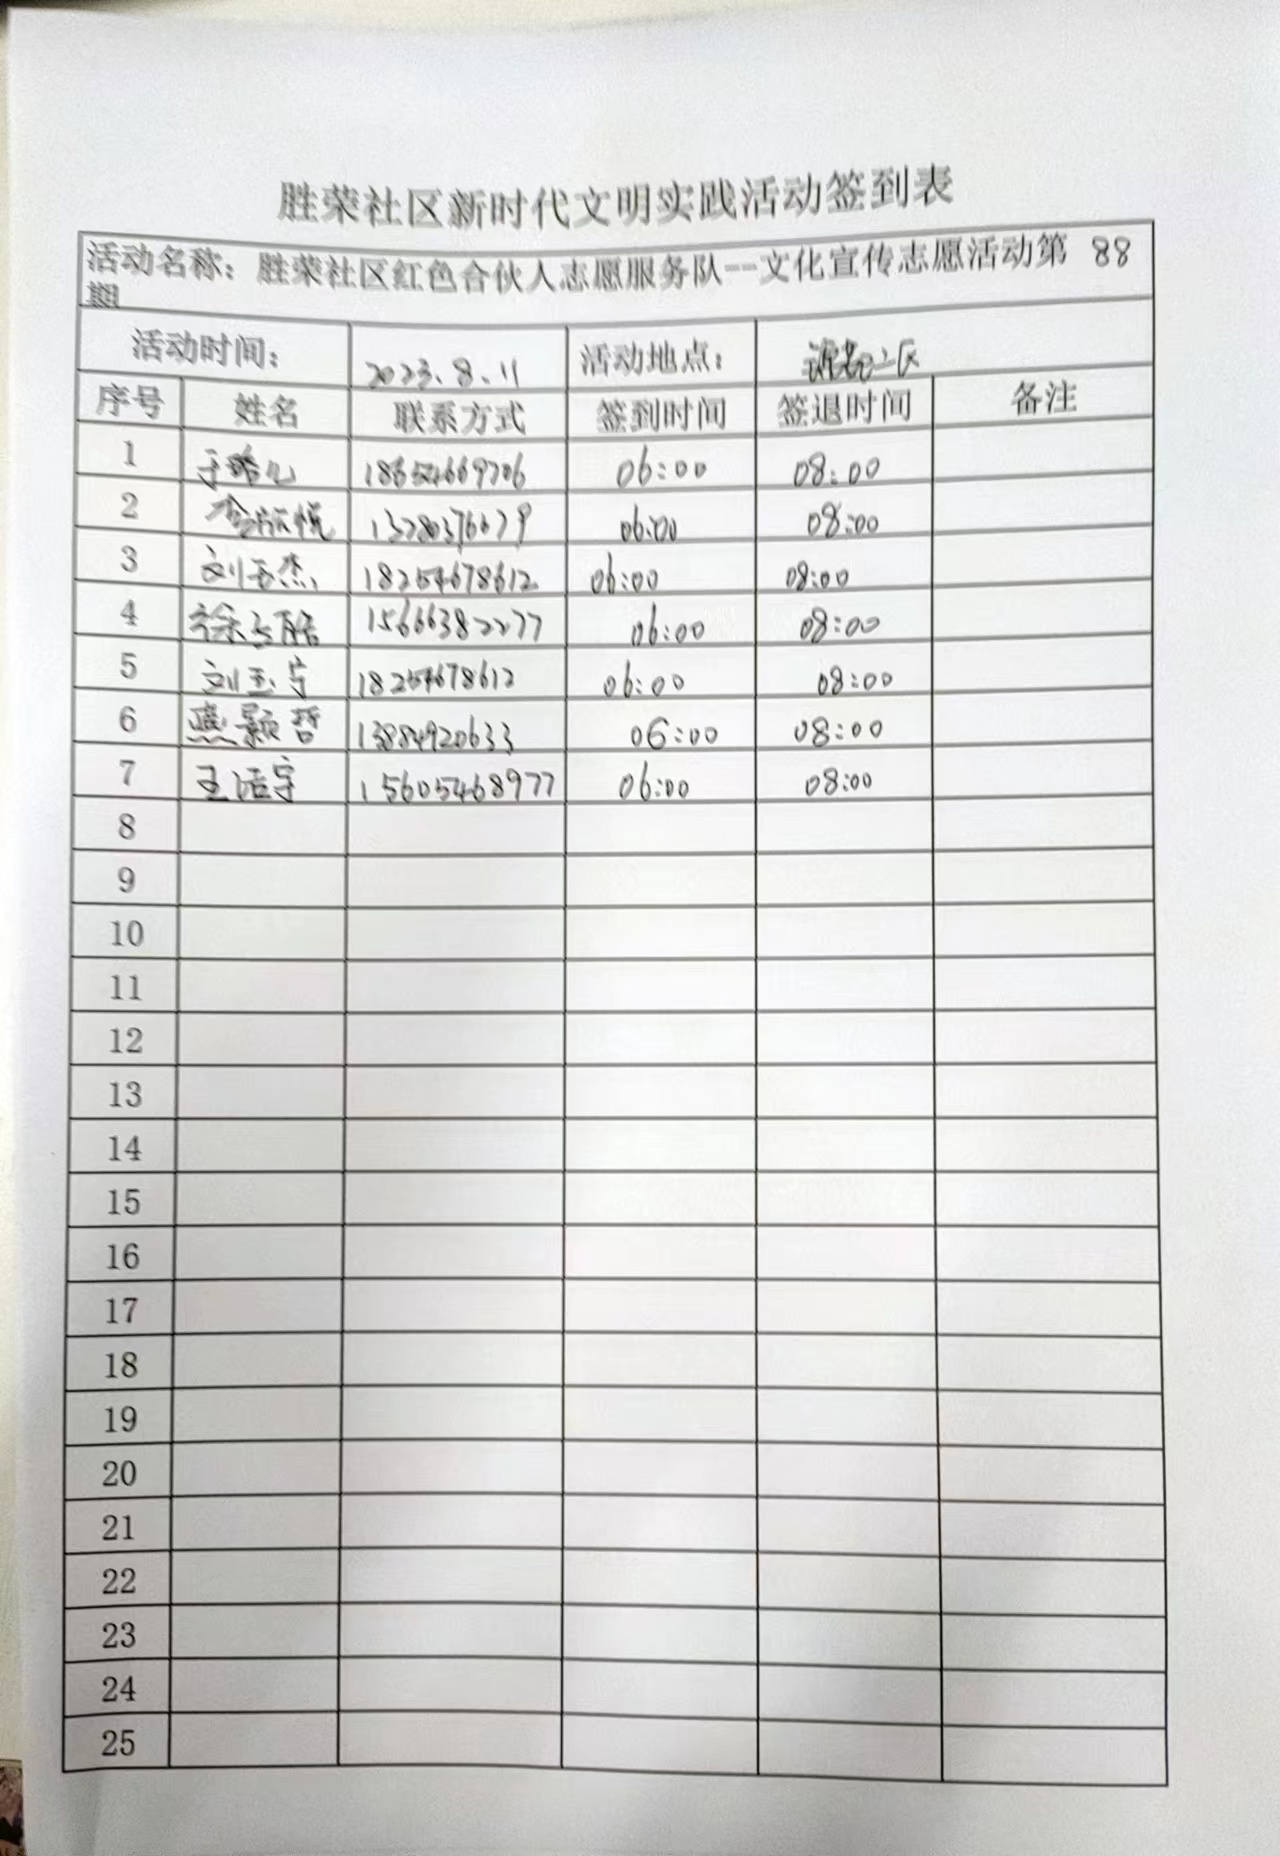 胜荣社区新时代文明实践活动签到表
活动名称：胜荣社区红色合伙人志愿服务队--文化宣传志愿活动第 88
期
活动时间： 2023.8.11 活动地点： 二区
序号 姓名 联系方式 签到时间 签退时间 备注
1 于 18654669706 06:00 08:00
2 悦 06:00 08:00
3 刘玉杰 18254678612 06:00 08:00
4 徐 15666382277 06:00 08:00
5 刘玉宁 18254678612 06:00 08:00
6 燕颖哲 13884920633 06:00 08:00
7 王浩宇 15605468977 06:00 08:00
8
9
10
11
12
13
14
15
16
17
18
19
20
21
22
23
24
25